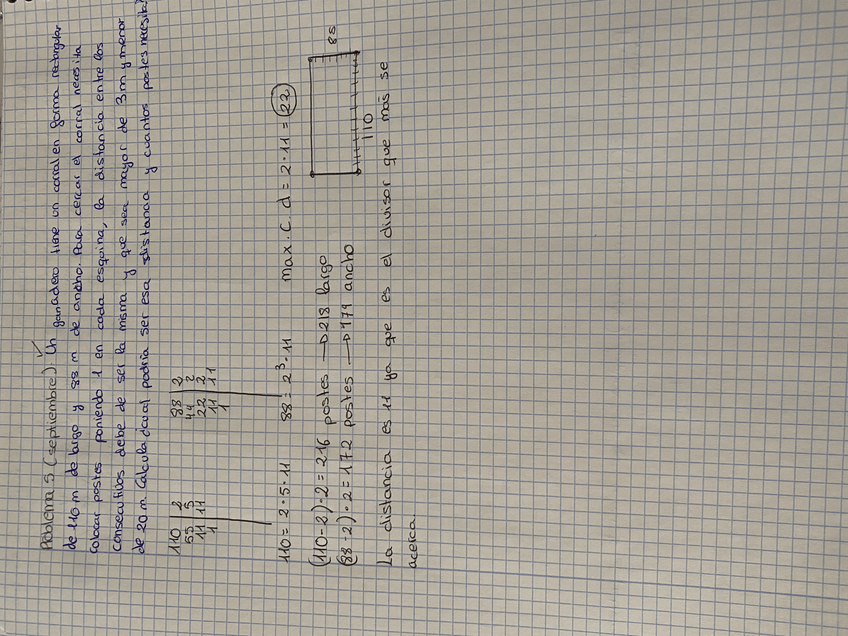 Problema 5 (septiembre): Un ganadero tiene un corral en forma retangular
de 110 m de largo y 88 m de ancho. Para cercar el corral necesita
colocar postes poniendo 1 en cada esquina, la distancia entre los
consecutivos debe de ser la misma y que sea mayor de 3m y menor
de 20 m. Calcula cual podria ser esa distancia y cuantos postes necesita.
110 | 2
55 | 5
11 | 11
1
88 | 2
44 | 2
22 | 2
11 | 11
1
110 = 2·5·11
88 = 2³·11
max.c.d = 2·11 = 22
(110-2)·2 = 216 postes → 218 largo
(88-2)·2 = 172 postes → 171 ancho
88
110
La distancia es 11 ya que es el divisor que más se
acerca.